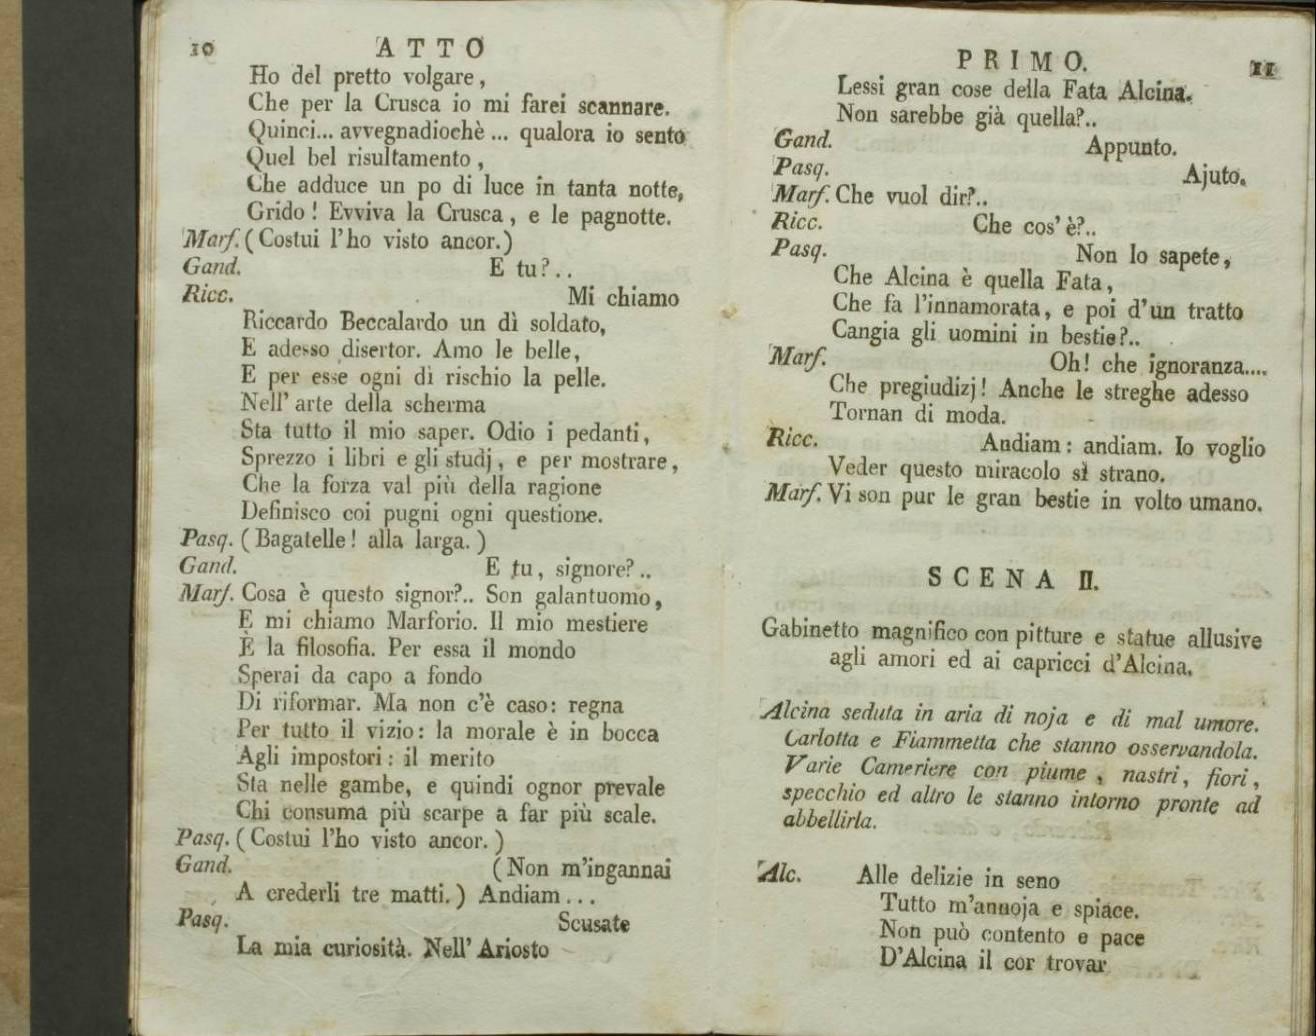 10 ATTO
Ho del pretto volgare,
Che per la Crusca io mi farei scannare.
Quinci... avvegnadiochè ... qualora io sento
Quel bel risultamento,
Che adduce un po di luce in tanta notte,
Grido! Evviva la Crusca, e le pagnotte.
Marf. (Costui l'ho visto ancor.)
Gand. E tu?..
Ricc. Mi chiamo
Riccardo Beccalardo un dì soldato,
E adesso disertor. Amo le belle,
E per esse ogni dì rischio la pelle.
Nell' arte della scherma
Sta tutto il mio saper. Odio i pedanti,
Sprezzo i libri e gli studj, e per mostrare,
Che la forza val più della ragione
Definisco coi pugni ogni questione.
Pasq. (Bagatelle! alla larga.)
Gand. E tu, signore?..
Marf. Cosa è questo signor?.. Son galantuomo,
E mi chiamo Marforio. Il mio mestiere
È la filosofia. Per essa il mondo
Sperai da capo a fondo
Di riformar. Ma non c'è caso: regna
Per tutto il vizio: la morale è in bocca
Agli impostori: il merito
Sta nelle gambe, e quindi ognor prevale
Chi consuma più scarpe a far più scale.
Pasq. (Costui l'ho visto ancor.)
Gand. (Non m'ingannai
A crederli tre matti.) Andiam...
Pasq. Scusate
La mia curiosità. Nell' Ariosto
PRIMO. 11
Lessi gran cose della Fata Alcina.
Non sarebbe già quella?..
Gand. Appunto.
Pasq. Ajuto.
Marf. Che vuol dir?..
Ricc. Che cos' è?..
Pasq. Non lo sapete,
Che Alcina è quella Fata,
Che fa l'innamorata, e poi d'un tratto
Cangia gli uomini in bestie?..
Marf. Oh! che ignoranza....
Che pregiudizj! Anche le streghe adesso
Tornan di moda.
Ricc. Andiam: andiam. Io voglio
Veder questo miracolo sì strano.
Marf. Vi son pur le gran bestie in volto umano.
SCENA II.
Gabinetto magnifico con pitture e statue allusive
agli amori ed ai capricci d'Alcina.
Alcina seduta in aria di noja e di mal umore.
Carlotta e Fiammetta che stanno osservandola.
Varie Cameriere con piume, nastri, fiori,
specchio ed altro le stanno intorno pronte ad
abbellirla.
Alc. Alle delizie in seno
Tutto m'annoja e spiace.
Non può contento e pace
D'Alcina il cor trovar